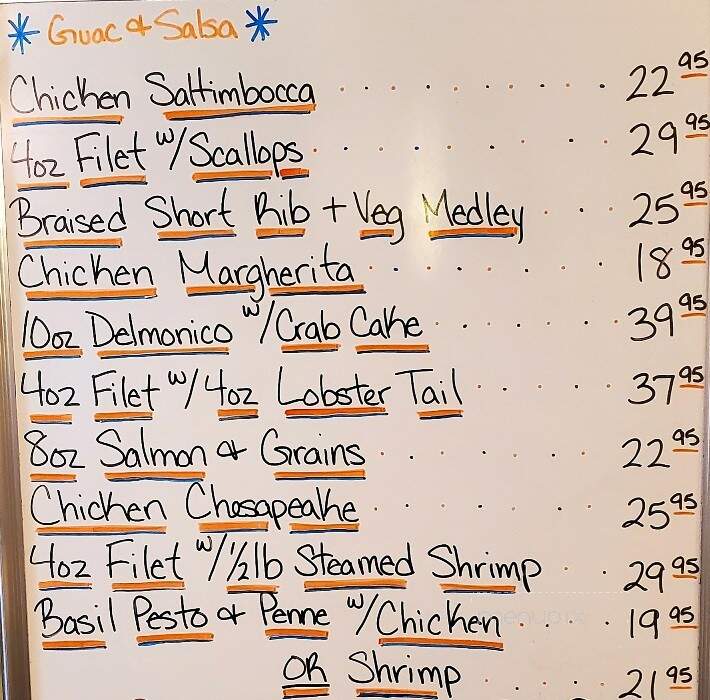 * Guac & Salsa *
Chicken Saltimbocca . . . . . . . . 22 95
4oz Filet w/Scallops . . . . . . . . 29 95
Braised Short Rib + Veg Medley . . . 25 95
Chicken Margherita . . . . . . . . 18 95
10oz Delmonico w/Crab Cake . . . . . . 39 95
4oz Filet w/4oz Lobster Tail . . . . . 37 95
8oz Salmon & Grains . . . . . . . 22 95
Chicken Chesapeake . . . . . . . 25 95
4oz Filet w/½lb Steamed Shrimp . . 29 95
Basil Pesto & Penne w/Chicken . . . 19 95
OR Shrimp . . . . . 21 95